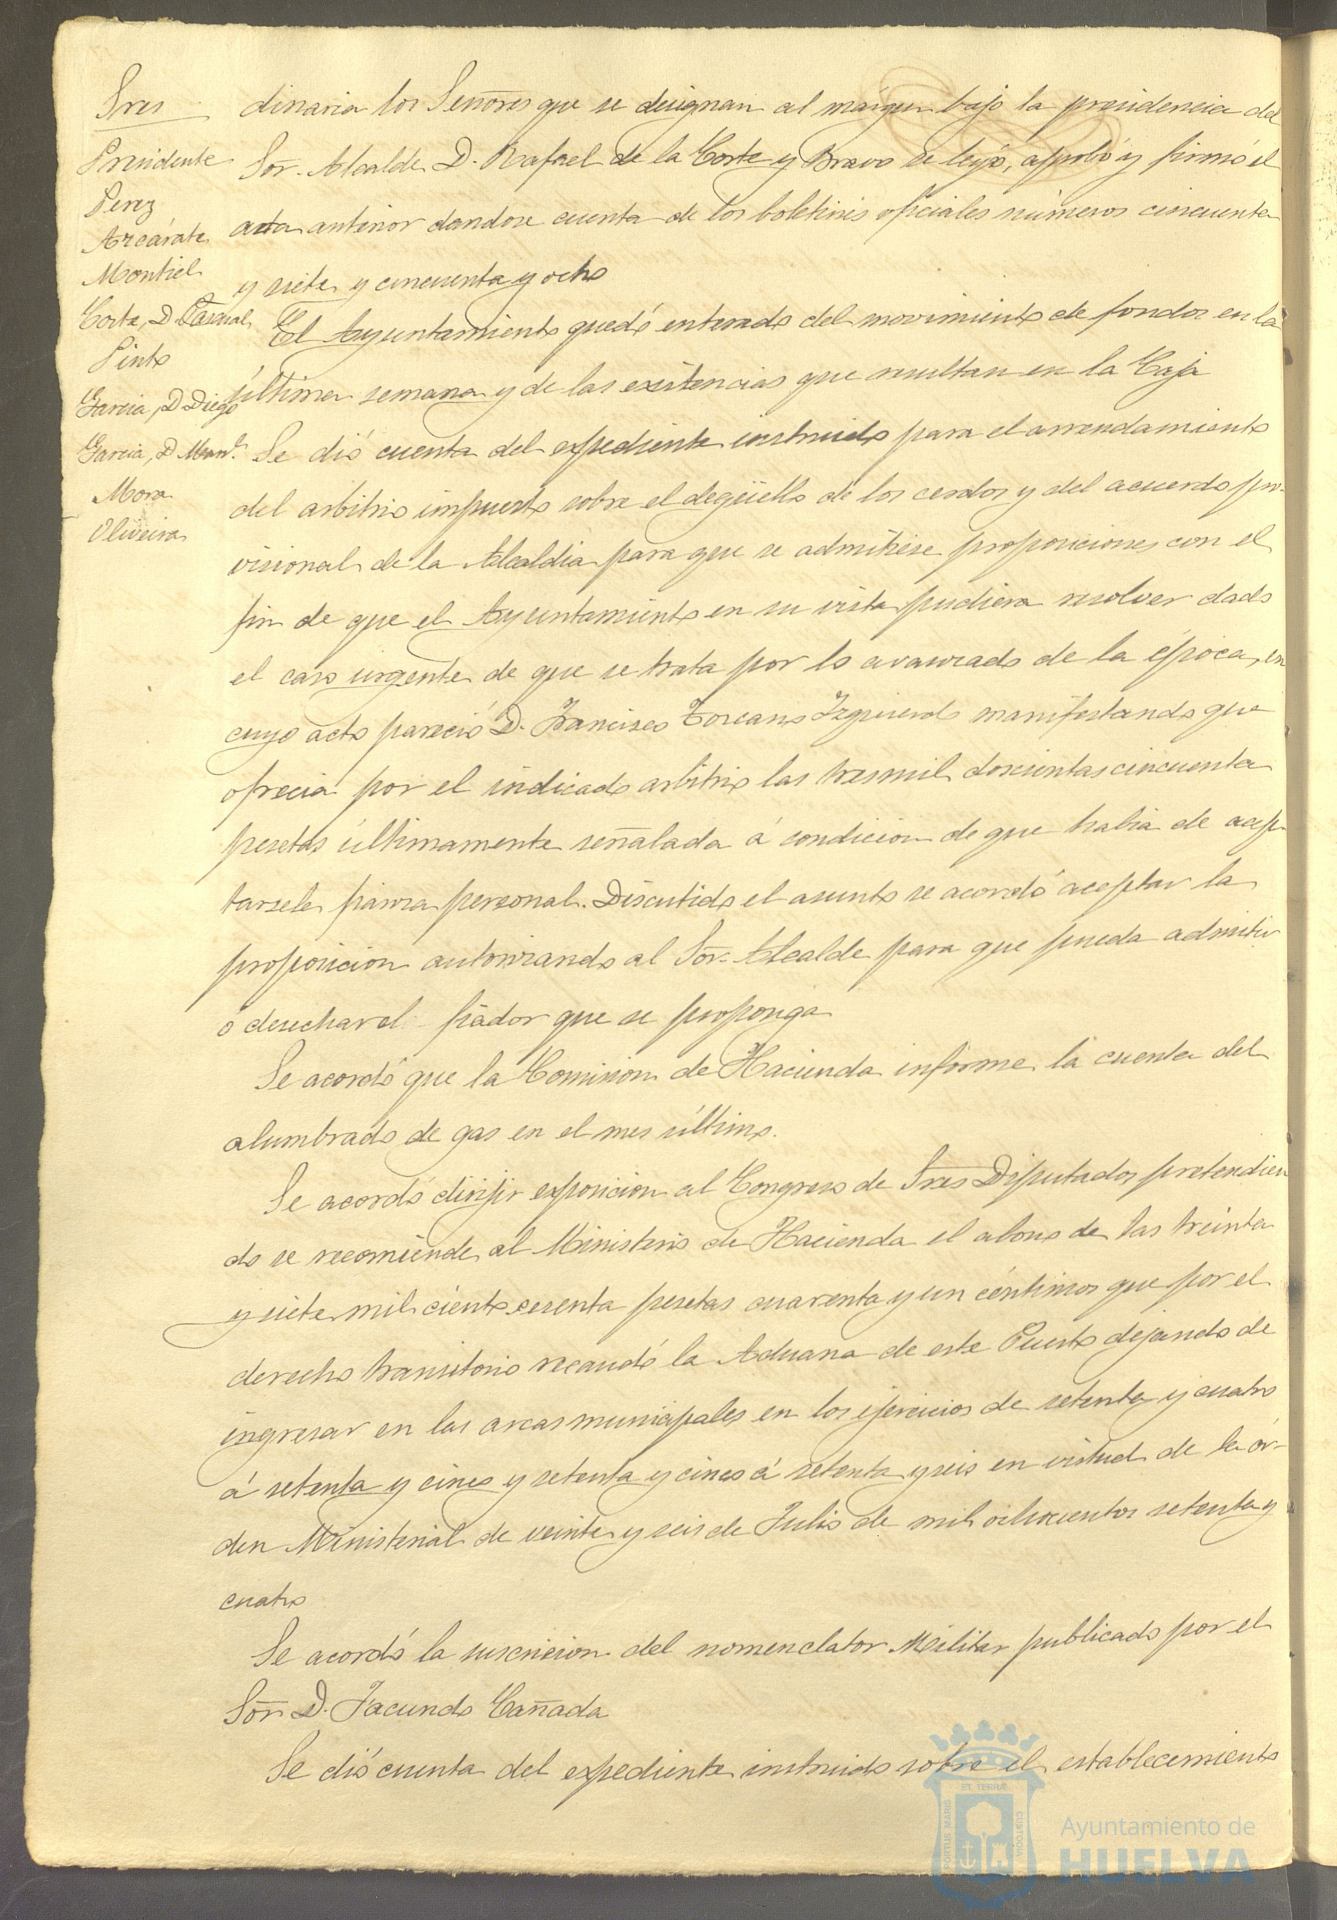 Sres
Presidente
Perez
Azcárate
Montiel
Corte, D. Pascual
Pinto
Garcia, D. Diego
Garcia, D. Manl.
Mora
Oliveira
dinaria los Señores que se designan al margen bajo la presidencia del
Sor. Alcalde D. Rafael de la Corte y Bravo se leyó, aprobó y firmó el
acta anterior dandose cuenta de los boletines oficiales números cincuenta
y siete y cincuenta y ocho
El Ayuntamiento quedó enterado del movimiento de fondos en la
última semana y de las existencias que resultan en la Caja
Se dió cuenta del expediente instruido para el arrendamiento
del arbitrio impuesto sobre el degüello de los cerdos y del acuerdo pro-
visional de la Alcaldia para que se admitiese proposiciones con el
fin de que el Ayuntamiento en su vista pudiera resolver dado
el caso urgente de que se trata por lo avanzado de la época, en
cuyo acto pareció D. Francisco Toscano Izquierdo manifestando que
ofrecia por el indicado arbitrio las tresmil doscientas cincuenta
pesetas últimamente señalada á condicion de que habia de acep-
tarsele fianza personal. Discutido el asunto se acordó aceptar la
proposicion autorizando al Sor. Alcalde para que pueda admitir
ó desechar el fiador que se proponga
Se acordó que la Comision de Hacienda informe la cuenta del
alumbrado de gas en el mes último.
Se acordó dirijir exposicion al Congreso de Sres Diputados pretendien
do se recomiende al Ministerio de Hacienda el abono de las treinta
y siete mil ciento sesenta pesetas cuarenta y un céntimos que por el
derecho transitorio recaudó la Aduana de este Puerto dejando de
ingresar en las arcas municipales en los ejercicios de setenta y cuatro
á setenta y cinco y setenta y cinco á setenta y seis en virtud de la ór-
den Ministerial de veinte y seis de Julio de mil ochocientos setenta y
cuatro
Se acordó la suscricion del nomenclator Militar publicado por el
Sor. D. Facundo Cañada
Se dió cuenta del expediente instruido sobre el establecimiento
PORTUS MARIS
ET TERRÆ
CUSTODIA
Ayuntamiento de
HUELVA